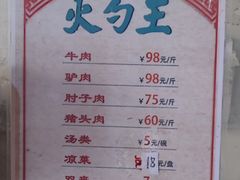 火勺王
牛肉 ¥98元/斤
驴肉 ¥98元/斤
肘子肉 ¥75元/斤
猪头肉 ¥60元/斤
汤类 ¥5元/碗
凉菜 18元/盘